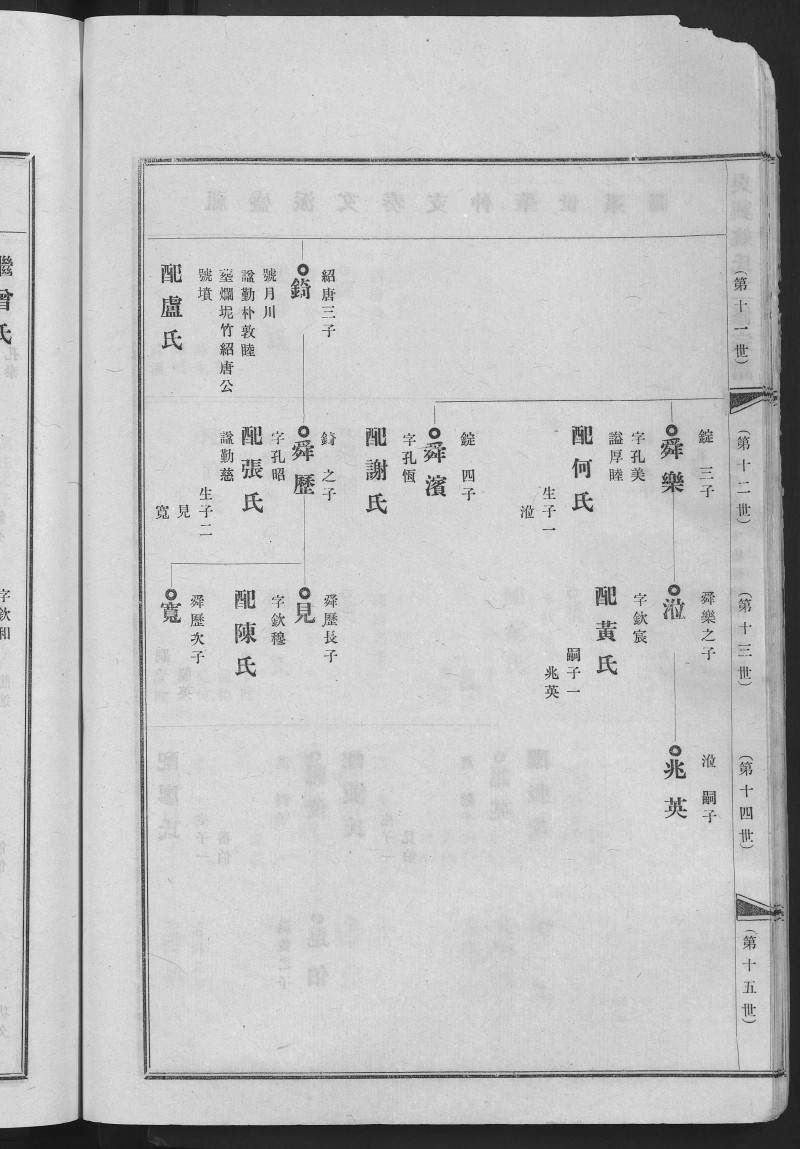 (第十一世)
紹唐三子
錡
號月川
諡勤朴敦睦
塟爛坭竹紹唐公
號墳
配盧氏
(第十二世)
錠三子
舜樂
字孔美
謚厚睦
配何氏
生子一
涖
錠四子
舜濱
字孔恆
配謝氏
錡之子
舜歷
字孔昭
配張氏
諡勤慈
生子二
見
寬
(第十三世)
舜樂之子
涖
字欽宸
配黃氏
嗣子一
兆英
舜歷長子
見
字欽穆
配陳氏
舜歷次子
寬
(第十四世)
涖嗣子
兆英
(第十五世)
繼曾氏
字欽和